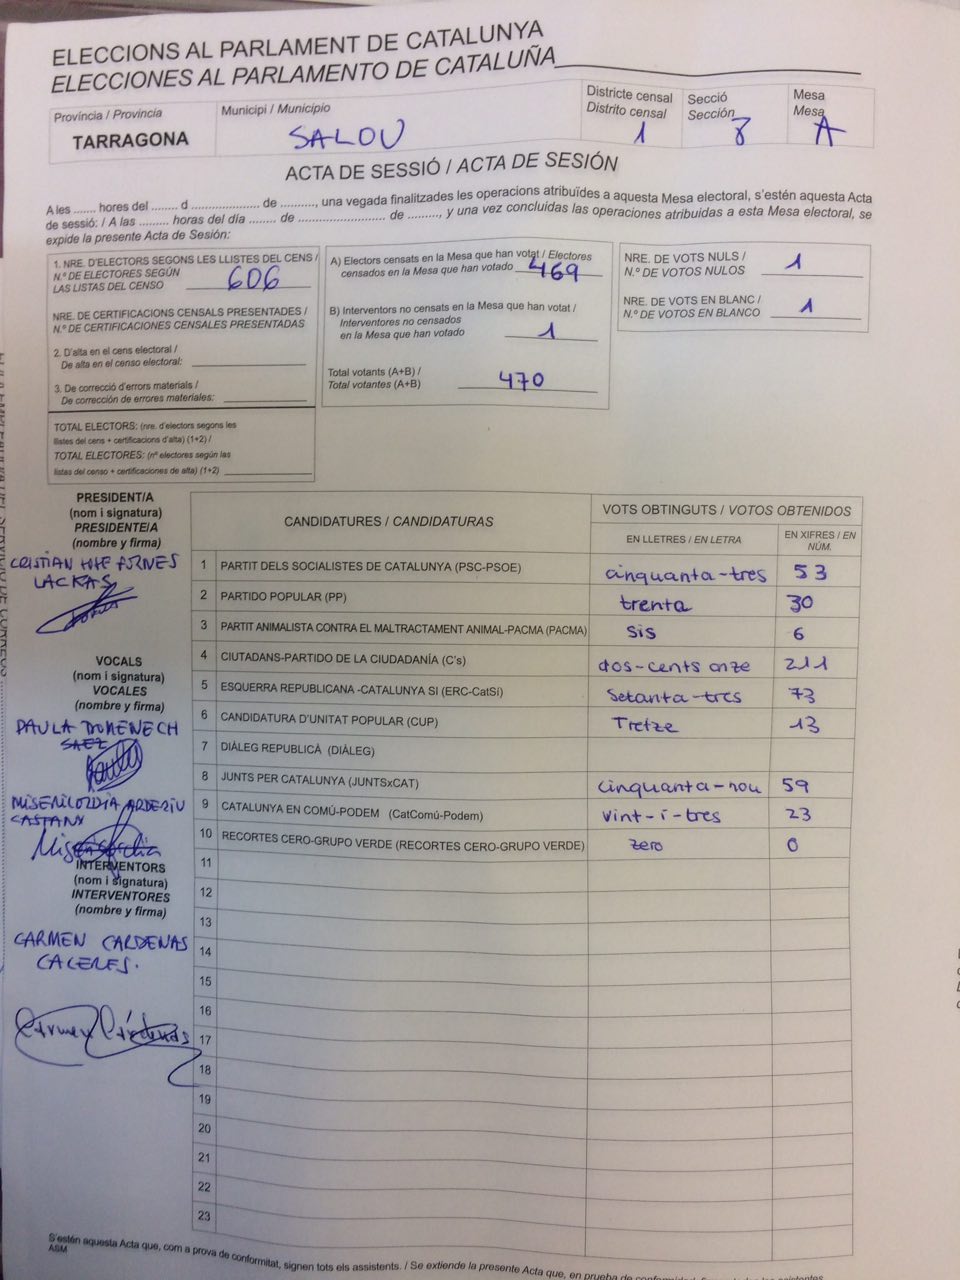 ELECCIONS AL PARLAMENT DE CATALUNYA
ELECCIONES AL PARLAMENTO DE CATALUÑA
Província / Provincia
TARRAGONA
Municipi / Municipio
SALOU
Districte censal
Distrito censal
1
Secció
Sección
8
Mesa
Mesa
A
ACTA DE SESSIÓ / ACTA DE SESIÓN
A les ....... hores del ........ d ..................... de .........., una vegada finalitzades les operacions atribuïdes a aquesta Mesa electoral, s'estén aquesta Acta
de sessió: / A las ......... horas del día ........ de ......................... de ........., y una vez concluidas las operaciones atribuidas a esta Mesa electoral, se
expide la presente Acta de Sesión:
1. NRE. D'ELECTORS SEGONS LES LLISTES DEL CENS /
N.º DE ELECTORES SEGÚN
LAS LISTAS DEL CENSO 606
NRE. DE CERTIFICACIONS CENSALS PRESENTADES /
N.º DE CERTIFICACIONES CENSALES PRESENTADAS
2. D'alta en el cens electoral /
De alta en el censo electoral:
3. De correcció d'errors materials /
De corrección de errores materiales:
TOTAL ELECTORS: (nre. d'electors segons les
llistes del cens + certificacions d'alta) (1+2) /
TOTAL ELECTORES: (nº electores según las
listas del censo + certificaciones de alta) (1+2)
A) Electors censats en la Mesa que han votat / Electores
censados en la Mesa que han votado 469
B) Interventors no censats en la Mesa que han votat /
Interventores no censados
en la Mesa que han votado 1
Total votants (A+B) /
Total votantes (A+B) 470
NRE. DE VOTS NULS /
N.º DE VOTOS NULOS 1
NRE. DE VOTS EN BLANC /
N.º DE VOTOS EN BLANCO 1
PRESIDENT/A
(nom i signatura)
PRESIDENTE/A
(nombre y firma)
CRISTIAN
VOCALS
(nom i signatura)
VOCALES
(nombre y firma)
PAULA DOMENECH
SAEZ
MISERICORDIA ARDERIU
CASTANY
INTERVENTORS
(nom i signatura)
INTERVENTORES
(nombre y firma)
CARMEN CARDENAS
CACERES.
Carmen Cárdenas
CANDIDATURES / CANDIDATURAS
VOTS OBTINGUTS / VOTOS OBTENIDOS
EN LLETRES / EN LETRA
EN XIFRES / EN
NÚM.
1 PARTIT DELS SOCIALISTES DE CATALUNYA (PSC-PSOE) cinquanta-tres 53
2 PARTIDO POPULAR (PP) trenta 30
3 PARTIT ANIMALISTA CONTRA EL MALTRACTAMENT ANIMAL-PACMA (PACMA) sis 6
4 CIUTADANS-PARTIDO DE LA CIUDADANÍA (C's) dos-cents onze 211
5 ESQUERRA REPUBLICANA -CATALUNYA SI (ERC-CatSí) Setanta-tres 73
6 CANDIDATURA D'UNITAT POPULAR (CUP) Tretze 13
7 DIÀLEG REPUBLICÀ (DIÀLEG)
8 JUNTS PER CATALUNYA (JUNTSxCAT) cinquanta-nou 59
9 CATALUNYA EN COMÚ-PODEM (CatComú-Podem) vint-i-tres 23
10 RECORTES CERO-GRUPO VERDE (RECORTES CERO-GRUPO VERDE) zero 0
11
12
13
14
15
16
17
18
19
20
21
22
23
S'estén aquesta Acta que, com a prova de conformitat, signen tots els assistents. / Se extiende la presente Acta que, en prueba de conformidad,
ASM